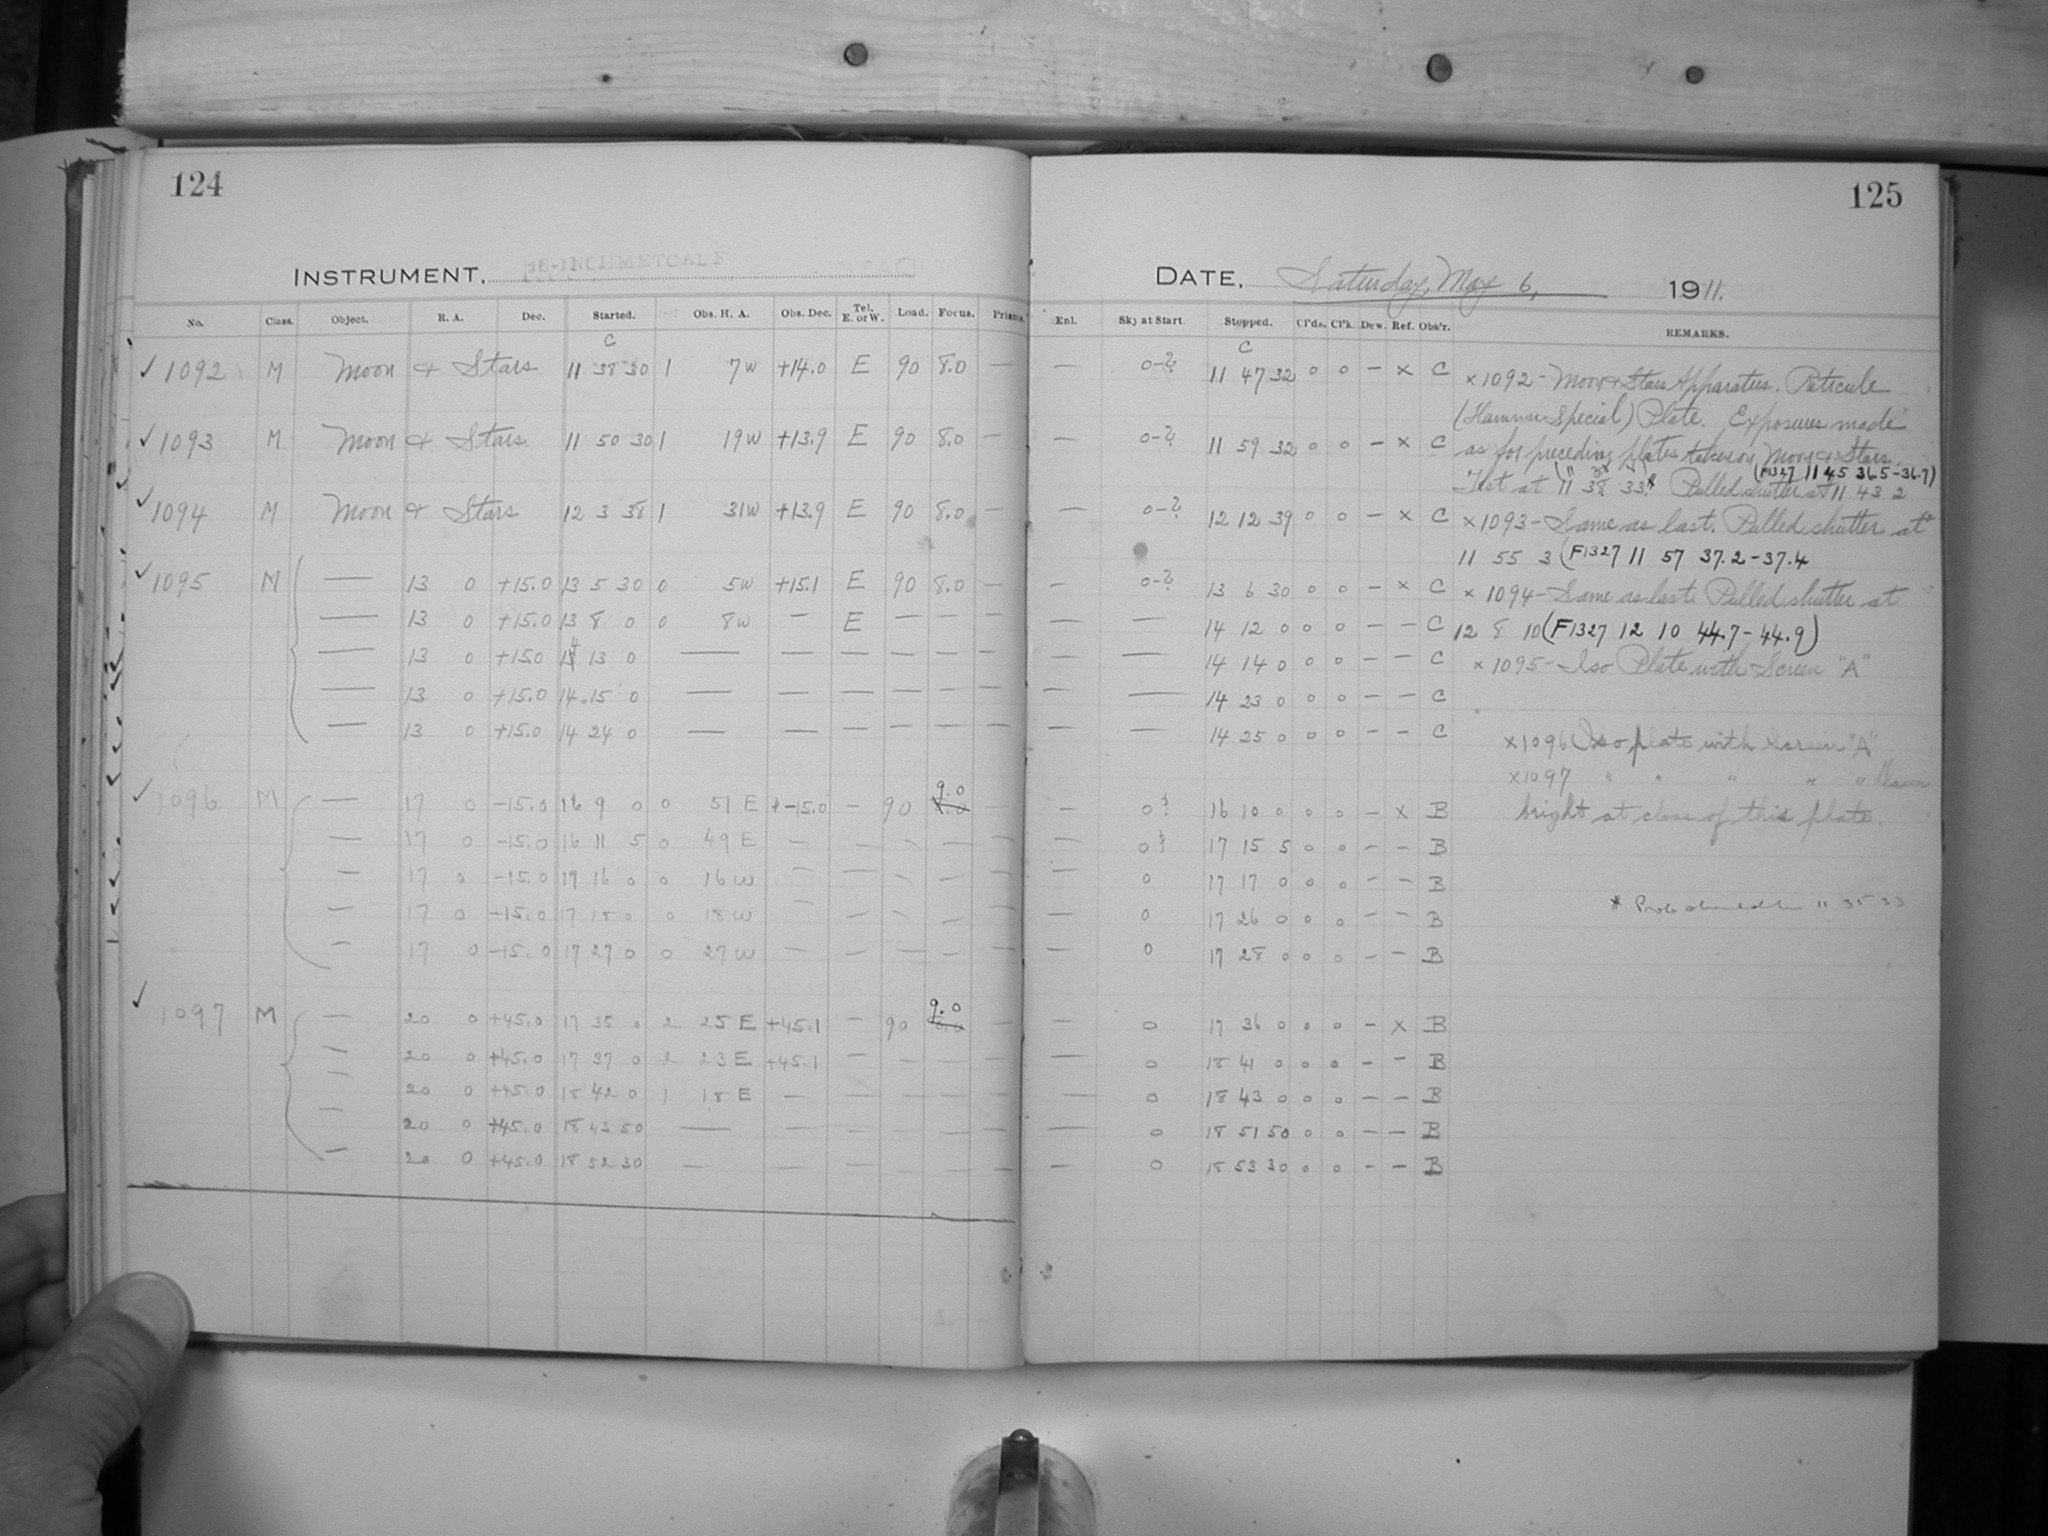 124
125
INSTRUMENT, 16-INCH METCALF
DATE, Saturday, May 6, 1911.
No. Class. Object. R. A. Dec. Started. Obs. H. A. Obs. Dec. Tel. E. or W. Load. Focus. Prisms. Enl. Sky at Start. Stopped. Cl'ds. Cl'k. Dew. Ref. Obs'r. REMARKS.
C C
✓ 1092 M Moon & Stars 11 38 30 1 7 W +14.0 E 90 8.0 — — 0-2 11 47 32 0 0 — x C
✓ 1093 M Moon & Stars 11 50 30 1 19 W +13.9 E 90 8.0 — — 0-2 11 59 32 0 0 — x C
✓ 1094 M Moon & Stars 12 3 38 1 31 W +13.9 E 90 8.0 — — 0-2 12 12 39 0 0 — x C
✓ 1095 M — 13 0 +15.0 13 5 30 0 5 W +15.1 E 90 8.0 — — 0-2 13 6 30 0 0 — x C
— 13 0 +15.0 13 8 0 0 8 W — E — — — — — 14 12 0 0 0 — — C
— 13 0 +15.0 14 13 0 — — — — — — — — 14 14 0 0 0 — — C
— 13 0 +15.0 14 15 0 — — — — — — — — 14 23 0 0 0 — — C
— 13 0 +15.0 14 24 0 — — — — — — — — 14 25 0 0 0 — — C
✓ 1096 M — 17 0 -15.0 16 9 0 0 51 E -15.0 — 90 9.0 8.0 — — 0 16 10 0 0 0 — x B
— 17 0 -15.0 16 11 5 0 49 E — — — — — — 0 17 15 5 0 0 — — B
— 17 0 -15.0 17 16 0 0 16 W — — — — — — 0 17 17 0 0 0 — — B
— 17 0 -15.0 17 18 0 0 18 W — — — — — — 0 17 26 0 0 0 — — B
— 17 0 -15.0 17 27 0 0 27 W — — — — — — 0 17 28 0 0 0 — — B
✓ 1097 M — 20 0 +45.0 17 35 0 2 25 E +45.1 — 90 9.0 — — 0 17 36 0 0 0 — x B
— 20 0 +45.0 17 37 0 2 23 E +45.1 — — — — — 0 18 41 0 0 0 — — B
— 20 0 +45.0 18 42 0 1 18 E — — — — — — 0 18 43 0 0 0 — — B
— 20 0 +45.0 18 43 50 — — — — — — — 0 18 51 50 0 0 — — B
— 20 0 +45.0 18 52 30 — — — — — — — 0 18 53 30 0 0 — — B
x 1092 - Moon & Stars Apparatus. Reticule
(Hammer Special) Plate. Exposures made
as for preceding plates taken on Moon & Stars.
(F1327 11 45 36.5-36.7)
Test at 11 38 33* Pulled shutter at 11 43 2
x 1093 - Same as last. Pulled shutter at
11 55 3 (F1327 11 57 37.2-37.4
x 1094 - Same as last. Pulled shutter at
12 8 10 (F1327 12 10 44.7-44.9)
x 1095 - Iso Plate with Screen "A"
x 1096 Iso plate with Screen "A"
x 1097 " " " " " Dawn
bright at close of this plate.
* Prob should be 11 35 33